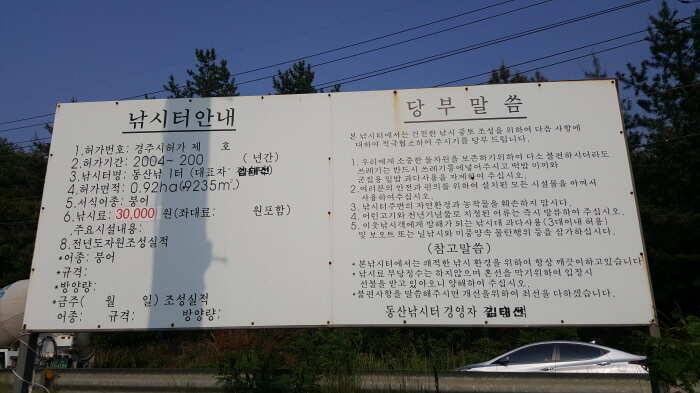 낚시터안내
1.허가번호: 경주시허가 제 호
2.허가기간: 2004~ 200 ( 년간)
3.낚시터명: 동산낚시터 (대표자
4.허가면적: 0.92ha(9235㎡)
5.서식어종: 붕어
6.낚시료: 30,000 원(좌대료: 원포함)
7.주요시설내용:
8.전년도자원조성실적
*어종: 붕어
*규격:
*방양량:
*금주( 월 일) 조성실적
어종: 규격: 방양량:
당부말씀
본 낚시터에서는 건전한 낚시 풍토 조성을 위하여 다음 사항에
대하여 적극협조하여 주시기를 당부 드립니다.
1.우리에게 소중한 물자원을 보존하기위하여 다소 불편하시더라도
쓰레기는 반드시 쓰레기통에넣어주시고 떡밥 미끼와
곤질용 밑밥 과다사용을 자제해 주십시오.
2.여러분의 안전과 편의를 위하여 설치된 모든 시설물을 아껴서
사용하여주십시오.
3.낚시터주변의 자연환경과 농작물을 훼손하지 맙시다.
4.어린고기와 천년기념물로 지정된 어류는 즉시 방류하여 주십시오.
5.이웃낚시객에게 방해가 되는 낚시대 과다사용(3대이내 허용)
및 보오트 또는 닐낚시와 미풍양속 문란행위 등을 삼가하십시다.
(참고말씀)
*본낚시터에서는 쾌적한 낚시 환경을 위하여 항상 깨끗이하고있습니다
*낚시료 부당징수는 하지않으며 혼선을 막기위하여 입장시
선불을 받고있아오니 양해하여 주십시오.
*불편사항을 말씀해주시면 개선을위하여 최선을 다하겠습니다.
동산낚시터 경영자 김태선